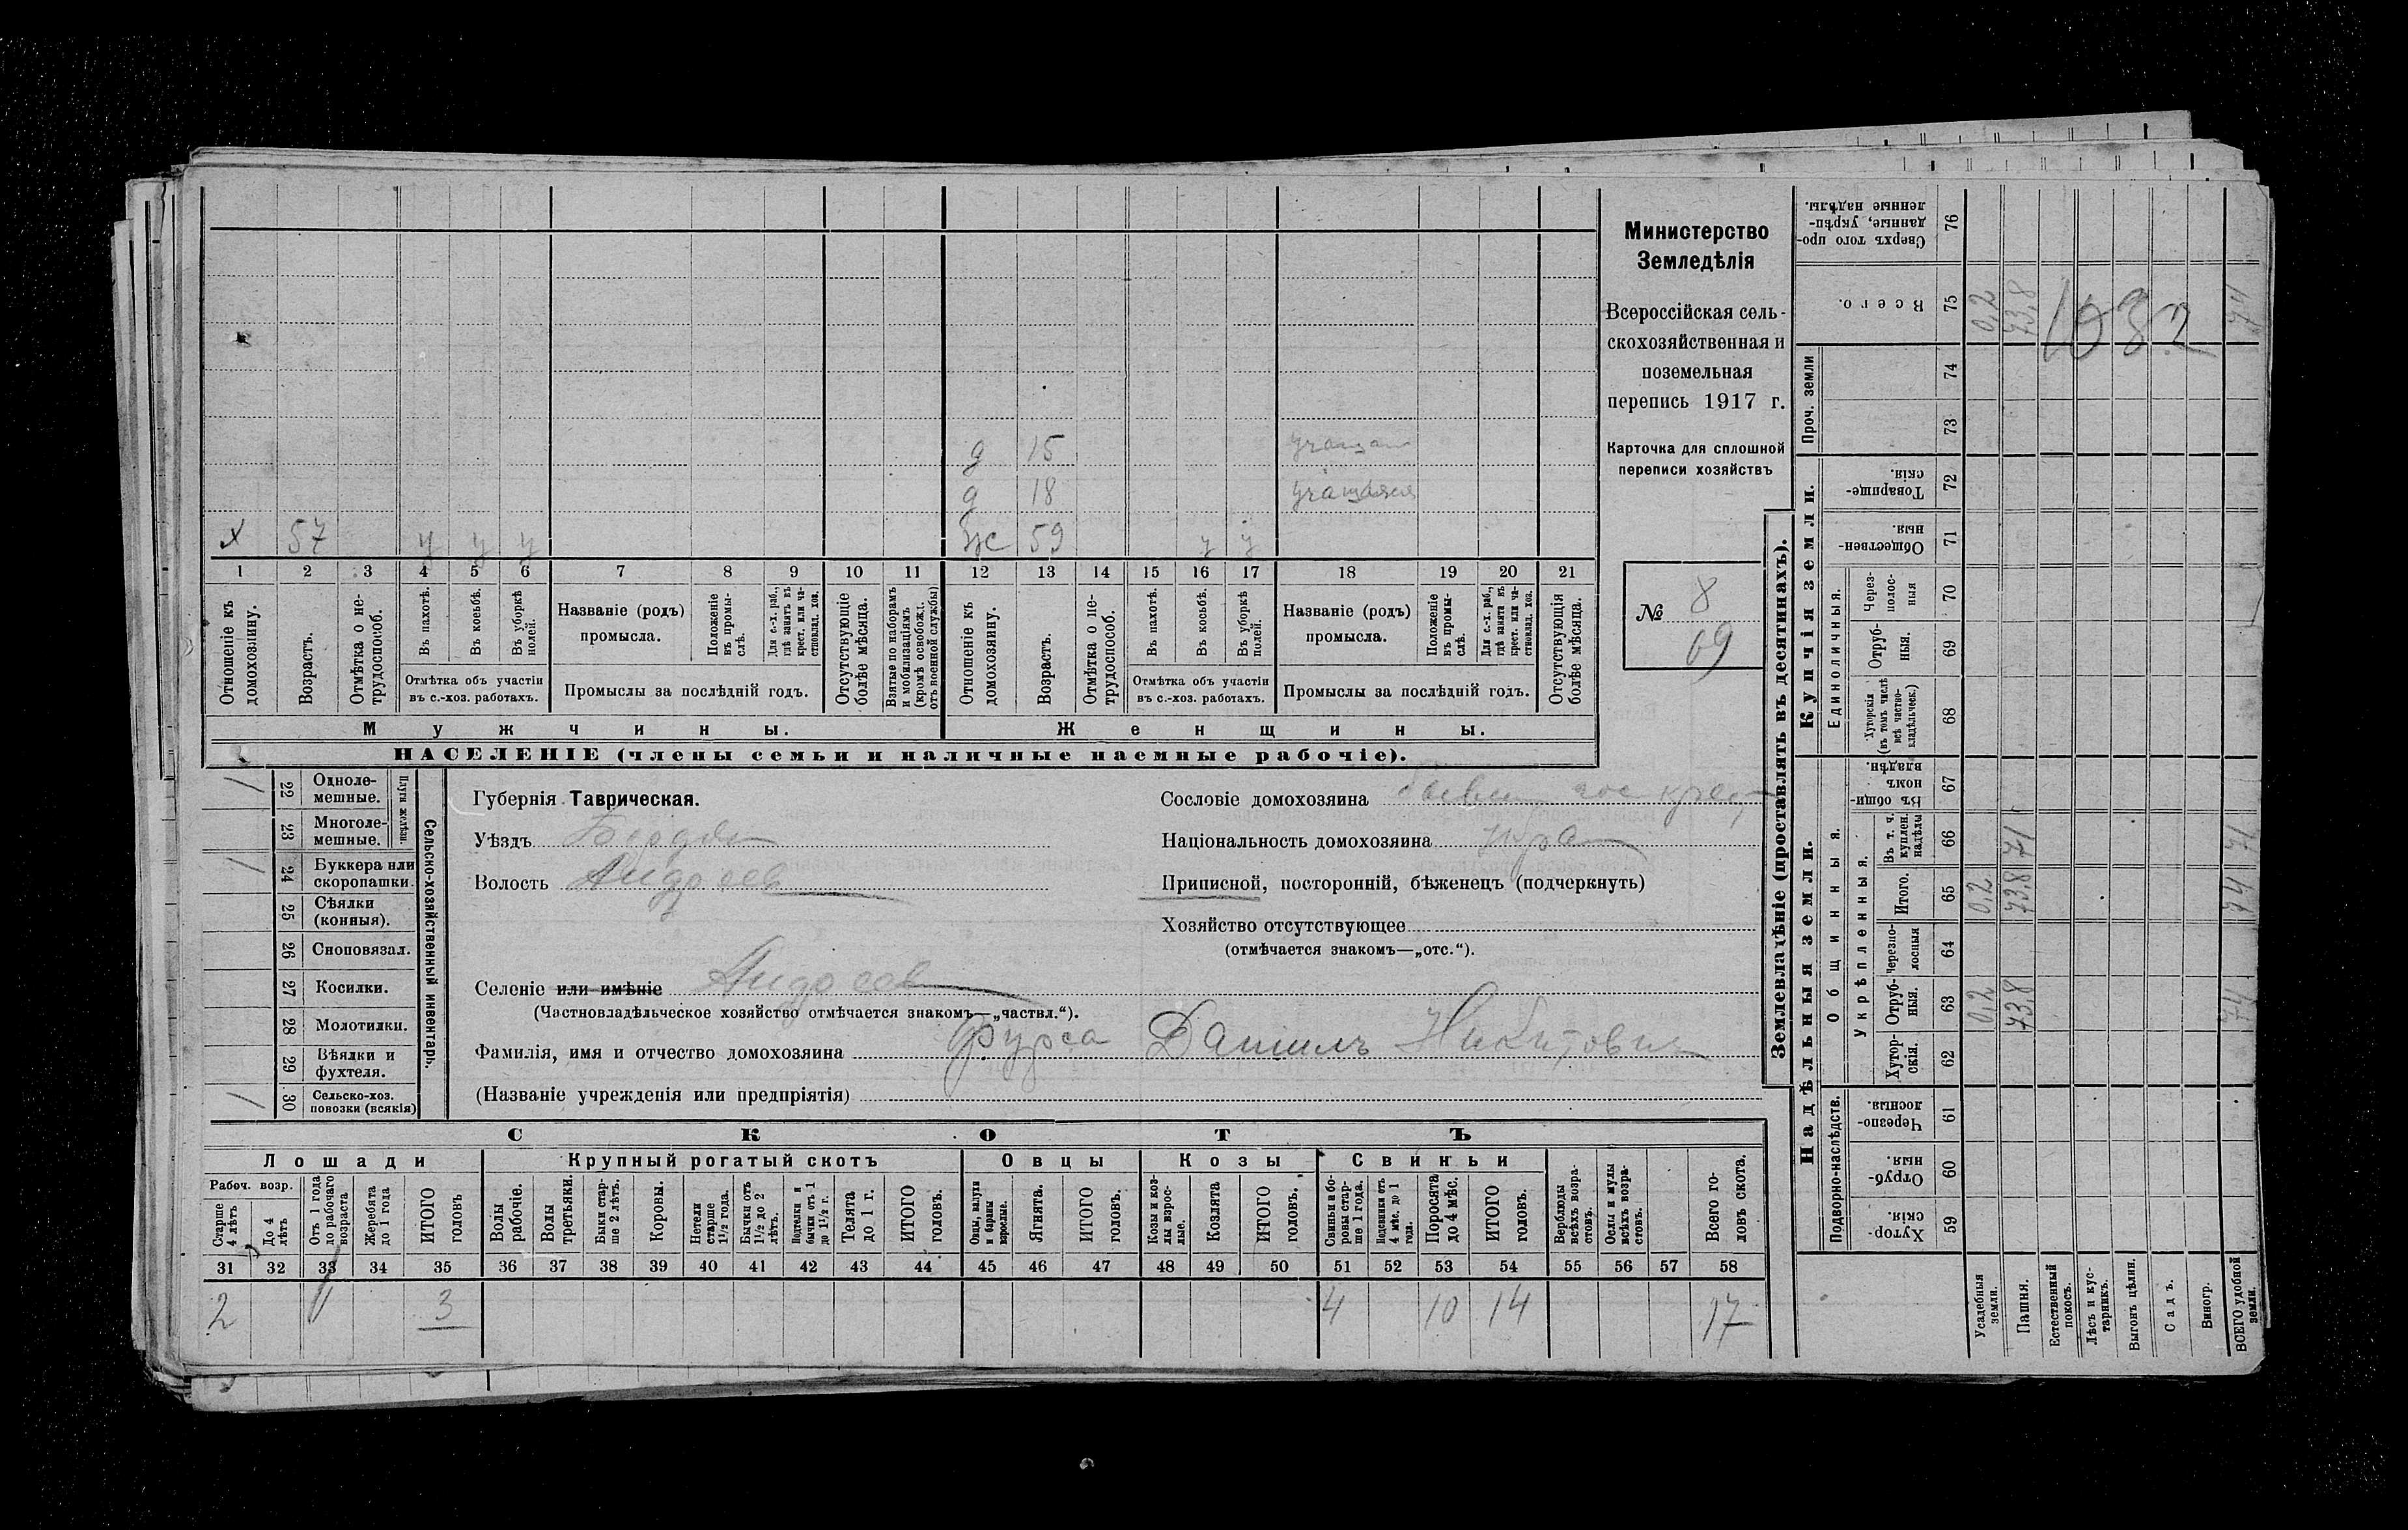 х 57 у у у
д 15
д 18
ж 59 у у
1 2 3 4 5 6 7 8 9 10 11 12 13 14 15 16 17 18 19 20 21
Отношеніе къ домохозяину.
Возрастъ.
Отмѣтка о не-
трудоспособ.
Въ пахотѣ.
Въ косьбѣ.
Въ уборкѣ
полей.
Отмѣтка объ участіи
въ с.-хоз. работахъ.
Названіе (родъ)
промысла.
Положеніе
въ промы-
слѣ.
Для с.-х. раб.,
гдѣ занятъ въ
крест. или ча-
стновлад. хоз.
Промыслы за послѣдній годъ.
Отсутствующіе
болѣе мѣсяца.
Взятые по наборамъ
и мобилизаціямъ
(кромѣ освобожд.
отъ военной службы)
Отношеніе къ
домохозяину.
Возрастъ.
Отмѣтка о не-
трудоспособ.
Въ пахотѣ.
Въ косьбѣ.
Въ уборкѣ
полей.
Отмѣтка объ участіи
въ с.-хоз. работахъ.
Названіе (родъ)
промысла.
Положеніе
въ промы-
слѣ.
Для с.-х. раб.,
гдѣ занятъ въ
крест. или ча-
стновлад. хоз.
Промыслы за послѣдній годъ.
Отсутствующія
болѣе мѣсяца.
Мужчины.
Женщины.
НАСЕЛЕНІЕ (члены семьи и наличные наемные рабочіе).
Министерство
Земледѣлія
Всероссійская сель-
скохозяйственная и
поземельная
перепись 1917 г.
Карточка для сплошной
переписи хозяйствъ
№ 8
69
22 Одноле-
мешные.
23 Многоле-
мешные.
Плуги желѣзн.
24 Буккера или
скоропашки.
25 Сѣялки
(конныя).
26 Сноповязал.
27 Косилки.
28 Молотилки.
29 Вѣялки и
фухтеля.
30 Сельско-хоз.
повозки (всякія)
Сельско-хозяйственный инвентарь.
Губернія Таврическая.
Уѣздъ Бердян
Волость Андреев
Селеніе или имѣніе Андреев
(Частновладѣльческое хозяйство отмѣчается знакомъ—„частвл.“).
Фамилія, имя и отчество домохозяина Фурса Даніилъ Никитович
(Названіе учрежденія или предпріятія)
Сословіе домохозяина
Національность домохозяина
Приписной, посторонній, бѣженецъ (подчеркнуть)
Хозяйство отсутствующее
(отмѣчается знакомъ—„отс.“).
СКОТЪ
Лошади
Крупный рогатый скотъ
Овцы
Козы
Свиньи
Рабоч. возр.
Старше
4 лѣтъ
До 4
лѣтъ
Отъ 1 года
до рабочаго
возраста
Жеребята
до 1 года
ИТОГО
головъ
Волы
рабочіе.
Волы
третьяки.
Быки стар-
ше 2 лѣтъ.
Коровы.
Нетели
старше
1½ года.
Бычки отъ
1½ до 2
лѣтъ.
Подтелки и
бычки отъ 1
до 1½ г.
Телята
до 1 г.
ИТОГО
головъ.
Овцы, валухи
и бараны
взрослые.
Ягнята.
ИТОГО
головъ.
Козы и коз-
лы взрос-
лые.
Козлята
ИТОГО
головъ.
Свиньи и бо-
ровы стар-
ше 1 года.
Подсвинки отъ
4 мѣс. до 1
года.
Поросята
до 4 мѣс.
ИТОГО
головъ.
Верблюды
всѣхъ возра-
стовъ.
Ослы и мулы
всѣхъ возра-
стовъ.
Всего го-
ловъ скота.
31 32 33 34 35 36 37 38 39 40 41 42 43 44 45 46 47 48 49 50 51 52 53 54 55 56 57 58
2 1 3 4 10 14 17
Землевладѣніе (проставлять въ десятинахъ).
Надѣльныя земли.
Купчія земли.
Проч. земли
Подворно-наслѣдств.
Общинныя.
Укрѣпленныя.
Единоличныя.
Сверхъ того про-
данные, укрѣп-
ленные надѣлы. 76
Всего. 75 0,2 73,8 74
1032
74
73
Товарище-
скія. 72
Обществен-
ныя. 71
Через-
полос-
ныя 70
Отруб-
ныя. 69
Хуторскія
(въ томъ числѣ
всѣ частно-
владѣльческ.) 68
Въ общи-
номъ
владѣн. 67
Въ т. ч.
куплен.
надѣлы 66 71 71
Итого. 65 0,2 73,8 74
Черезпо-
лосныя 64
Отруб-
ныя. 63 0,2 73,8 74
Хутор-
скія. 62
Черезпо-
лосныя. 61
Отруб-
ныя. 60
Хутор-
скія. 59
Усадебныя
земли.
Пашня.
Естественный
покосъ.
Лѣсъ и кус-
тарникъ.
Выгонъ цѣлин.
Садъ.
Виногр.
ВСЕГО удобной
земли.